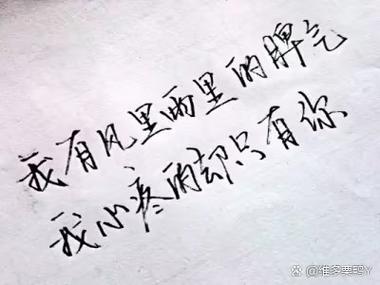 我有风里雨里的脾气
我心疼的却只有你
@维多栗鸭Y